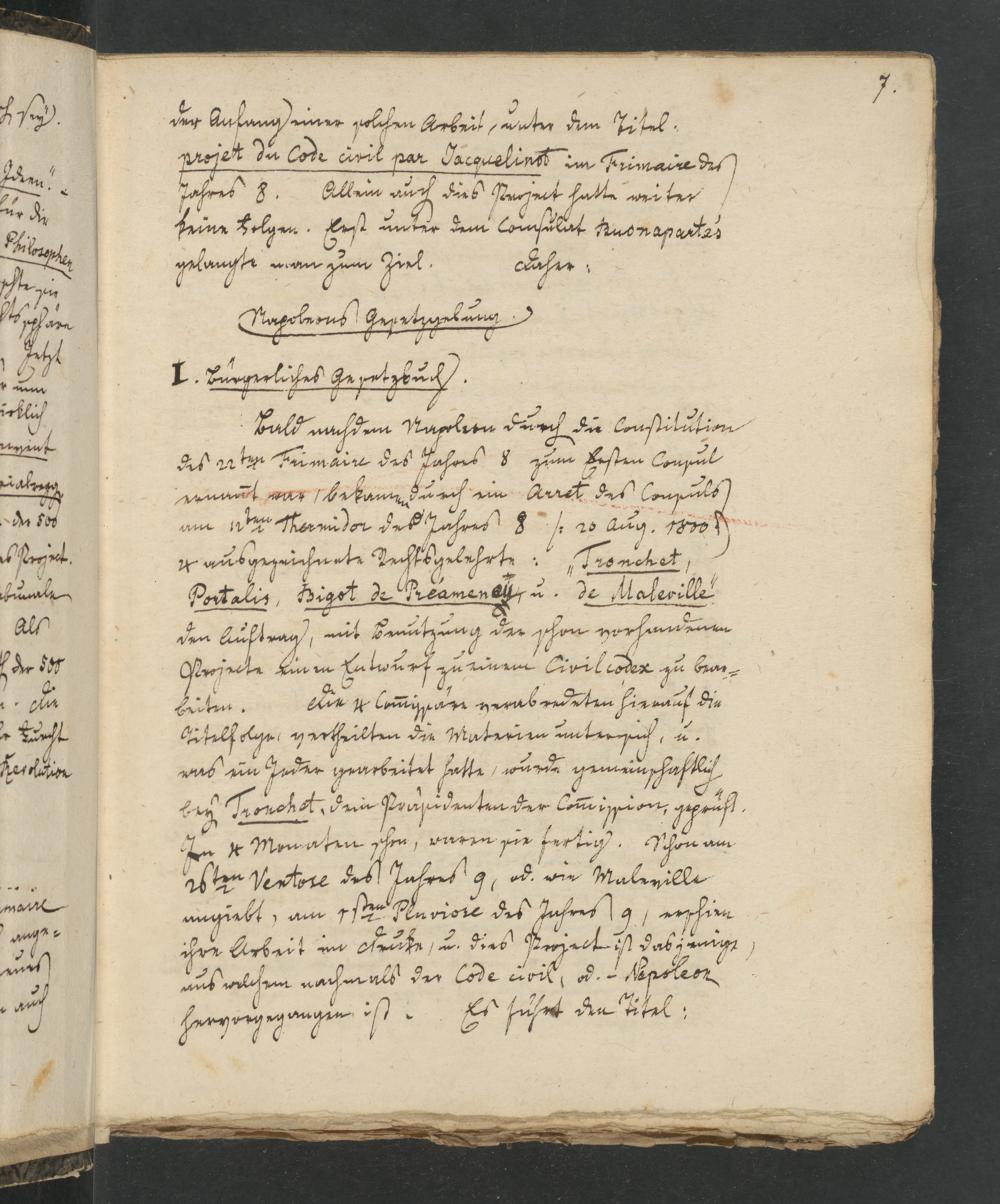 7.
der Anfang einer solchen Arbeit, unter dem Titel.
projet du Code civil par Jacquelinot im Frimaire des
Jahres 8. Allein auch dies Project hatte weiter
keine Folgen. Erst unter dem Consulat Buonaparte's
gelangte man zum Ziel. Daher:
Napoleons Gesetzgebung.
I. Bürgerliches Gesetzbuch.
Bald nachdem Napoleon durch die Constitution
des 22ten Frimaire des Jahres 8 zum Ersten Consul
ernannt war, bekamen durch ein Arret des Consuls
am 12ten Thermidor des Jahres 8 /: 20 Aug. 1800 :/
4 ausgezeichnete Rechtsgelehrte: „Tronchet,
Portalis, Bigot de Préameney, u. de Maleville"
den Auftrag, mit Benutzung der schon vorhandenen
Projecte einen Entwurf zu einem Civilcodex zu bear-
beiten. Die 4 Com̅issäre verabredeten hierauf die
Titelfolge, vertheilten die Materien unter sich, u.
was ein Jeder gearbeitet hatte, wurde gemeinschaftlich
bey Tronchet, dem Präsidenten der Com̅ission, geprüft.
In 4 Monaten schon, waren sie fertig. Schon am
26ten Ventose des Jahres 9, od. wie Maleville
angiebt, am 1sten Pluviose des Jahres 9, erschien
ihre Arbeit im Drucke, u. dies Project ist dasjenige,
aus welchem nachmals der Code civil, od. – Napoleon
hervorgegangen ist. Es führt den Titel:
ch sey.
Ideen." –
für die
Philosophen
Jetzt
nun
wirklich
der 500
Project.
Als
der 500
Die
Furcht
Revolution
ange-
auch